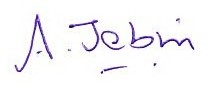 A. Jebin